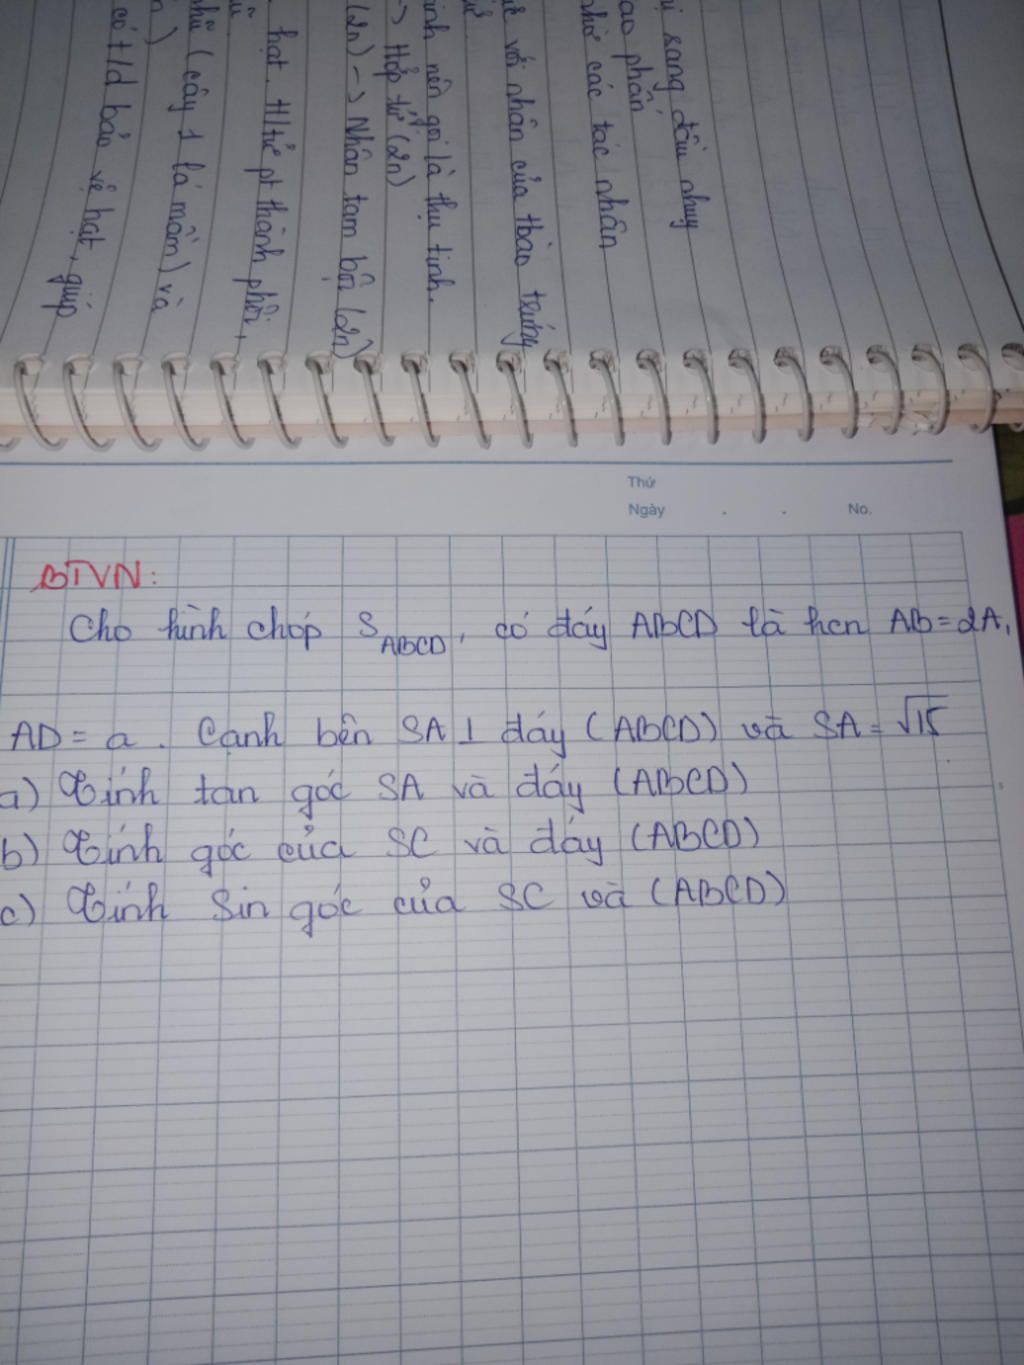 ị sang đầu nhụy
ao phấn
nhờ các tác nhân
với nhân của tbào trứng
inh nên gọi là thụ tinh.
-> Hợp tử (2n)
(2n) -> Nhân tam bội (2n)
hạt. H/tử pt thành phôi,
nhũ (cây 1 lá mầm) và
có t/d bảo vệ hạt, giúp
Thứ
Ngày . . No.
BTVN:
Cho hình chóp S ABCD, có đáy ABCD là hcn AB=2A,
AD = a. Cạnh bên SA⊥ đáy (ABCD) và SA = √15
a) Tính tan góc SA và đáy (ABCD)
b) Tính góc của SC và đáy (ABCD)
c) Tính Sin góc của SC và (ABCD)